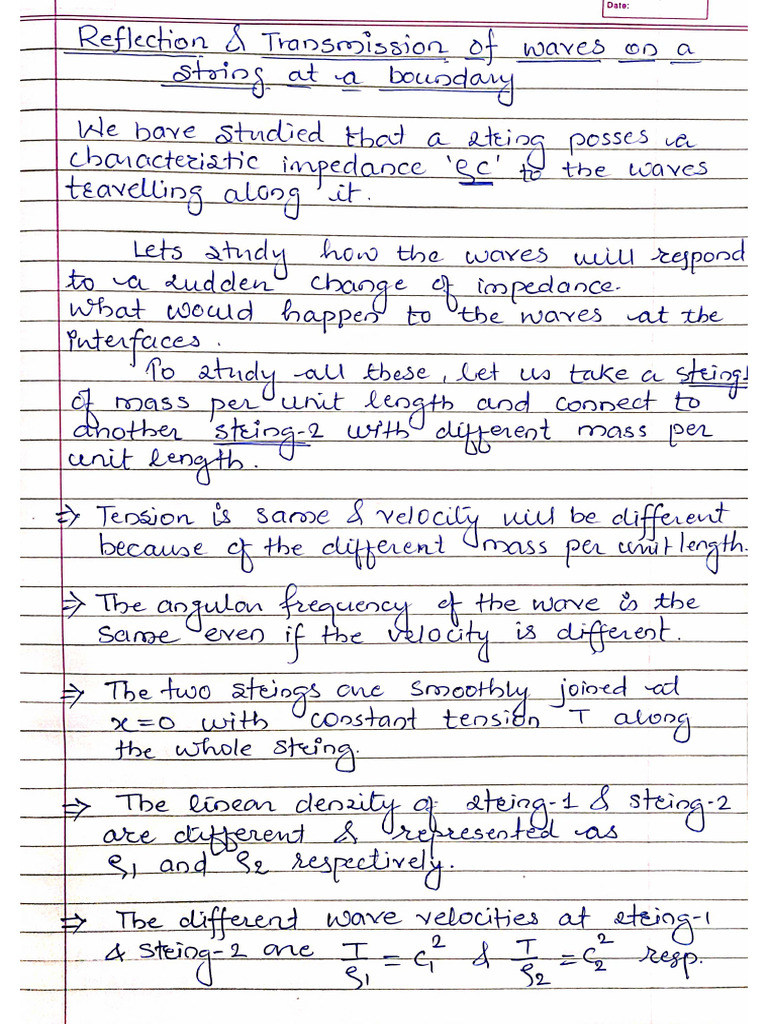 Date:
Reflection & Transmission of waves on a
string at a boundary
We have studied that a string posses a
characteristic impedance 'ρc' to the waves
travelling along it.
Lets study how the waves will respond
to a sudden change of impedance.
What would happen to the waves at the
interfaces.
To study all these, let us take a string
of mass per unit length and connect to
another string-2 with different mass per
unit length.
⇒ Tension is same & velocity will be different
because of the different mass per unit length.
⇒ The angular frequency of the wave is the
same even if the velocity is different.
⇒ The two strings are smoothly joined at
x=0 with constant tension T along
the whole string.
⇒ The linear density of string-1 & string-2
are different & represented as
ρ1 and ρ2 respectively.
⇒ The different wave velocities at string-1
& string-2 are T/ρ1 = c1² & T/ρ2 = c2² resp.